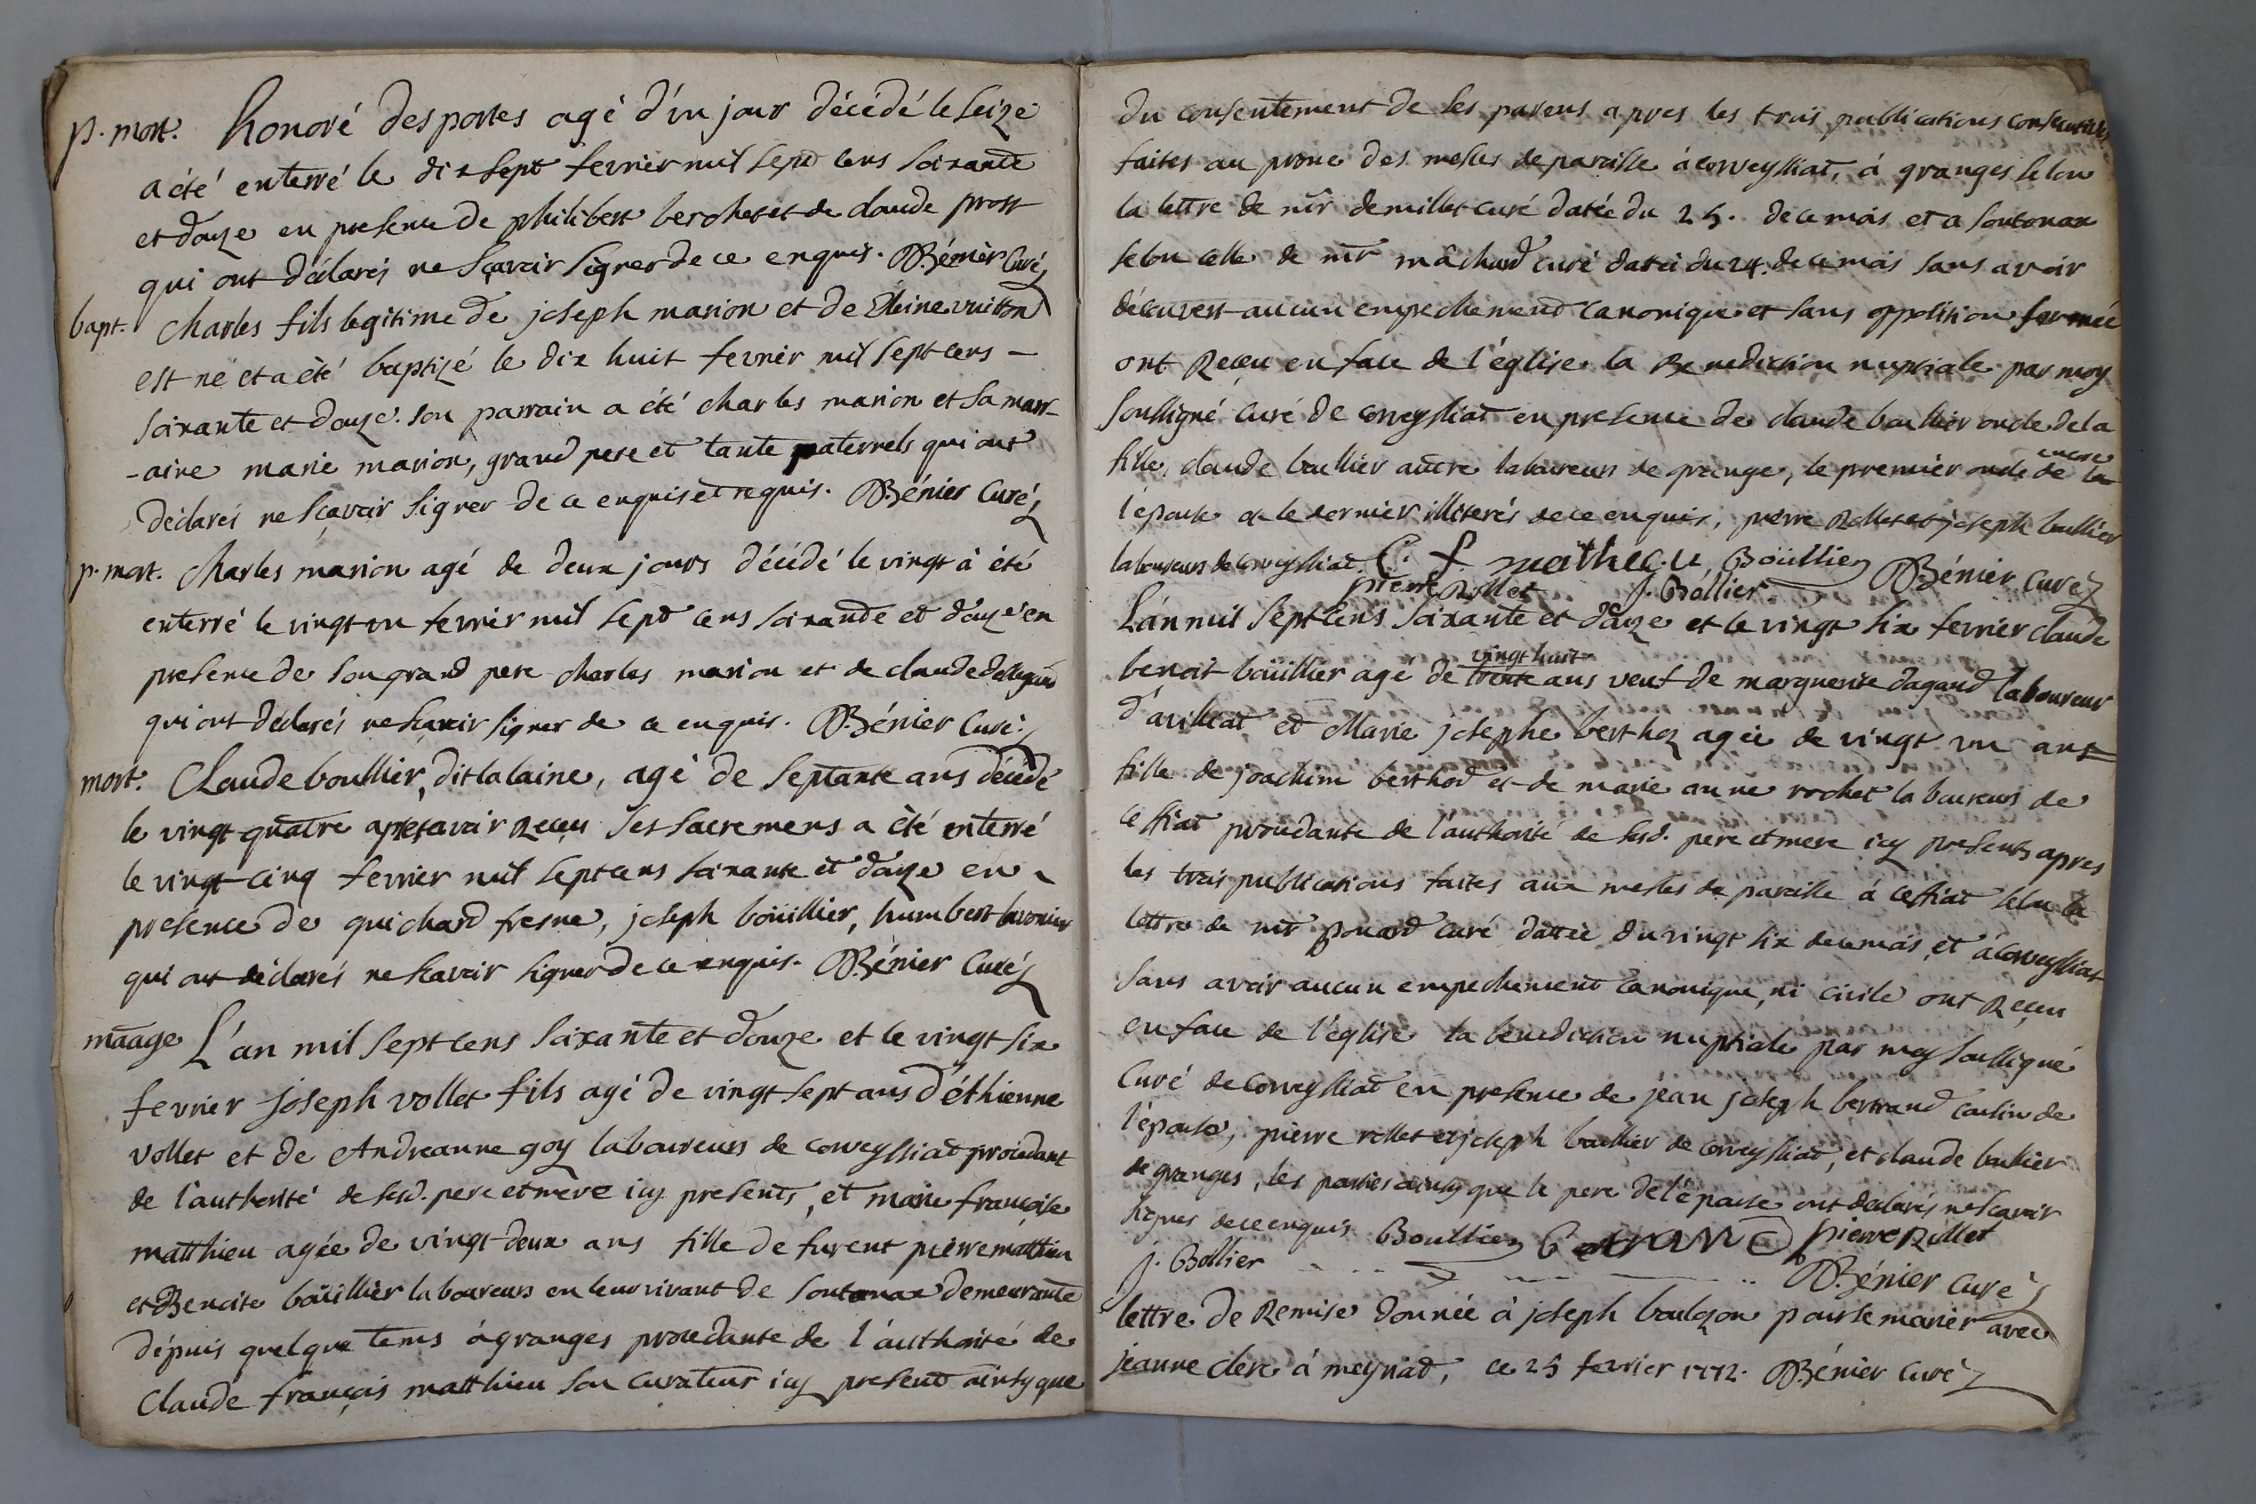 p. mort. honoré desportes agé d'un jour décédé le seize
a été enterré le dix sept fevrier mil sept cens soixante
et douze en presence de philibert berchet et de claude prost
qui ont déclarés ne sçavoir signer de ce enquis. Bénier Curé
bapt. Charles fils legitime de joseph marion et de vuitton
est né et a été baptizé le dix huit fevrier mil sept cens –
soixante et douze. son parrain a été charles marion et sa marr-
-aine marie marion, grand pere et tante paternels qui ont
declarés ne sçavoir signer de ce enquis et requis. Bénier Curé
p. mort. Charles marion agé de deux jours décédé le vingt à été
enterré le vingt un fevrier mil sept cens soixante et douze en
presence de son grand pere charles marion et de claude
qui ont déclarés ne scavoir signer de ce enquis. Bénier Curé
mort. Claude boullier, dit lalaine, agé de septante ans décédé
le vingt quatre apres avoir reçeu ses sacremens a été enterré
le vingt cinq fevrier mil sept cens soixante et douze en
presence de guichard fresne, joseph boüillier, humbert
qui ont déclarés ne scavoir signer de ce enquis. Bénier Curé
maage L'an mil sept cens soixante et douze et le vingt six
fevrier joseph vollet fils agé de vingt sept ans d'éthienne
vollet et de Andreanne goy laboureurs de corveyssiat procedant
de l'authorité de sesd. pere et mere icy presents, et marie françoise
matthieu agée de vingt-deux ans fille de furent pierre matthieu
et Benoite boüillier laboureurs en leur vivant de sontonax demeurante
dépuis quelque tems à granges procedante de l'authorité de
Claude françois matthieu son curateur icy present ainsy que
du consentement de ses parens apres les trois publications consecutives
faites au prone des messes de paroisse à corveyssiat, à granges selon
la lettre de mr demillet curé datée du 25. de ce mois et a sontonax
selon celle de mr mâchard curé datée du 24. de ce mois sans avoir
découvert aucun empechement canonique et sans opposition formée
ont Reçeu en face de l'église la Benediction nuptiale par moy
soussigné curé de corveyssiat en presence de claude boullier oncle de la
fille, claude boullier autre laboureurs de grange, le premier oncle encore de la
l'épouse et le dernier illiterés de ce enquis, pierre Rollet et joseph boullier
laboureurs de corveyssiat. C. f. mathieu, Boüillier Bénier Curé
pierre Rollet J. Bollier
L'an mil sept cens soixante et douze et le vingt six fevrier claude
benoit boüillier agé de trente vingt huit ans veuf de marguerite dagand laboureur
d'arillat et Marie josephe berthoz agée de vingt un ans
fille de joachim berthod et de marie anne rochet laboureurs de
ceffiat procedante de l'authorité de sesd. pere et mere icy presents apres
les trois publications faites aux messes de paroisse à ceffiat selon la
lettre de mr curé dattée du vingt six de ce mois, et à corveyssiat
sans avoir aucun empechement canonique, ni civile ont Reçeu
en face de l'église la benediction nuptiale par moy soussigné
Curé de corveyssiat en presence de jean joseph bertrand cousin de
l'épouse, pierre rollet et joseph boullier de corveyssiat, et claude boullier
de granges, les parties ainsy que le pere de l'épouse ont declarés ne scavoir
signer de ce enquis Boullier Bertrand pierre Rollet
J. Bollier Bénier Curé
lettre de Remise donnée à joseph pour se marier avec
jeanne clerc à meyriat, ce 25 fevrier 1772. Bénier Curé